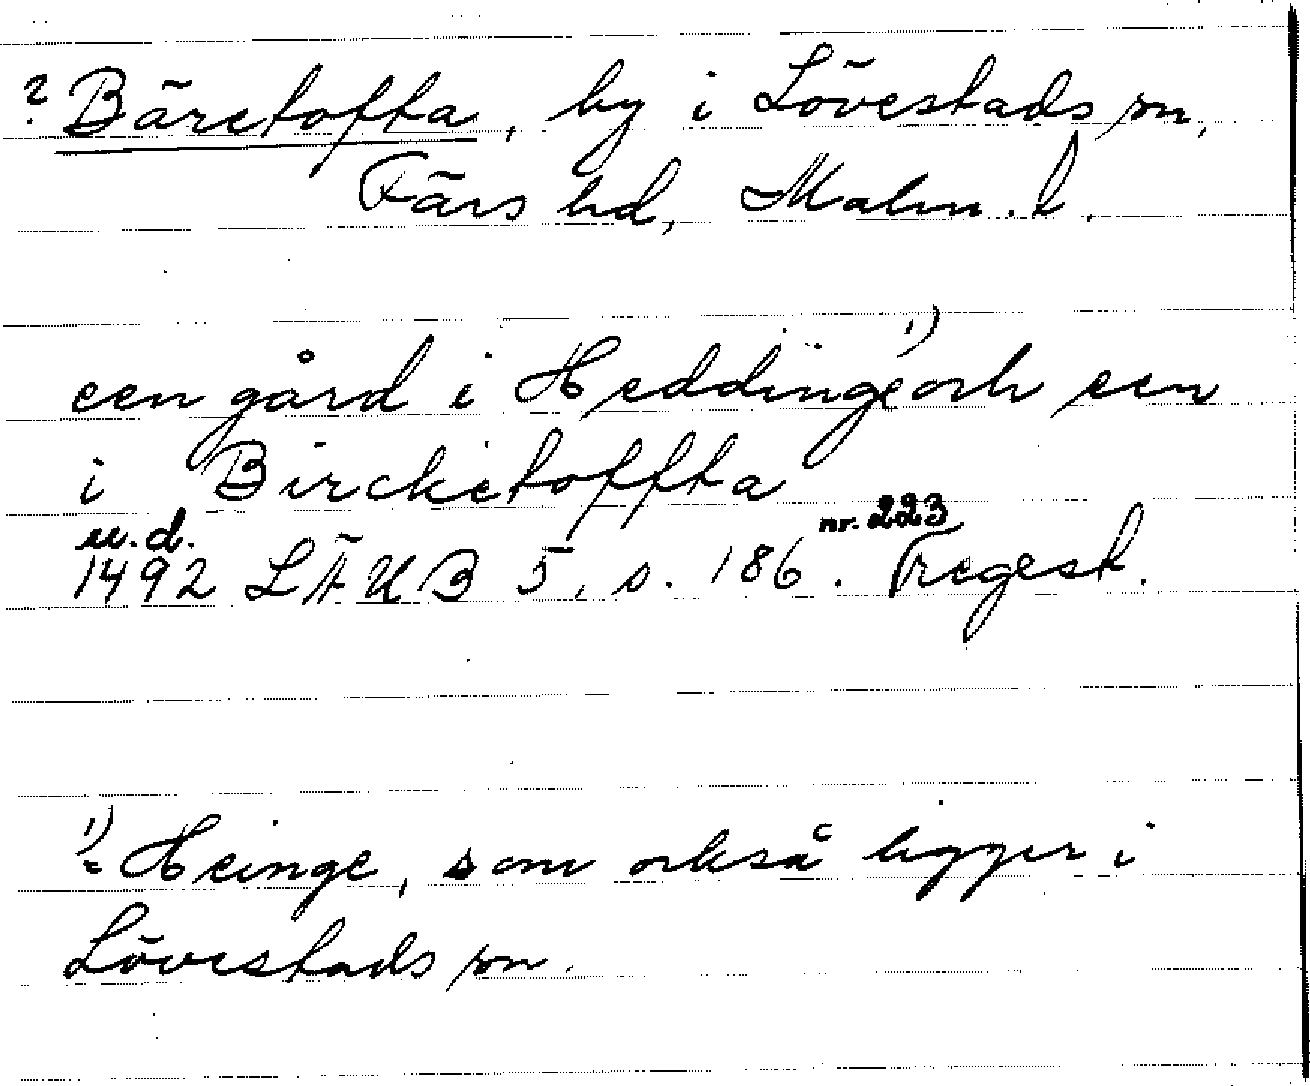 ? Bäretofta, by i Lövestads sn,
Färs hd, Malm. l.
een gård i Heddinge¹⁾ och een
i Bircketoffta
u.d.
1492 LÄUB 5, s. 186. nr. 223 Regest.
¹⁾ = Heinge, som också ligger i
Lövestads sn.